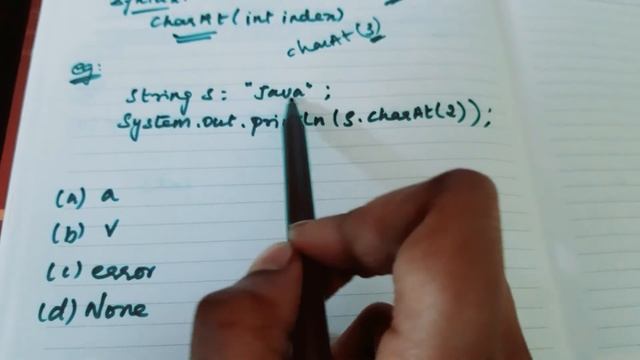 Syntax:
charAt(int index)
charAt(3)
eg:
String s: "Java";
System.out.println(s.charAt(2));
(a) a
(b) v
(c) error
(d) None